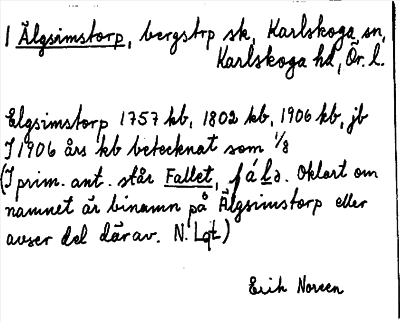 1 Älgsimstorp, bergstrp sk, Karlskoga sn,
Karlskoga hd, Ör. l.
Elgsimstorp 1757 kb, 1802 kb, 1906 kb, jb
I 1906 års kb betecknat som 1/8
(I prim. ant. står Fallet, fálə. Oklart om
namnet är binamn på Älgsimstorp eller
avser del därav. N. Lqt)
Erik Noreen